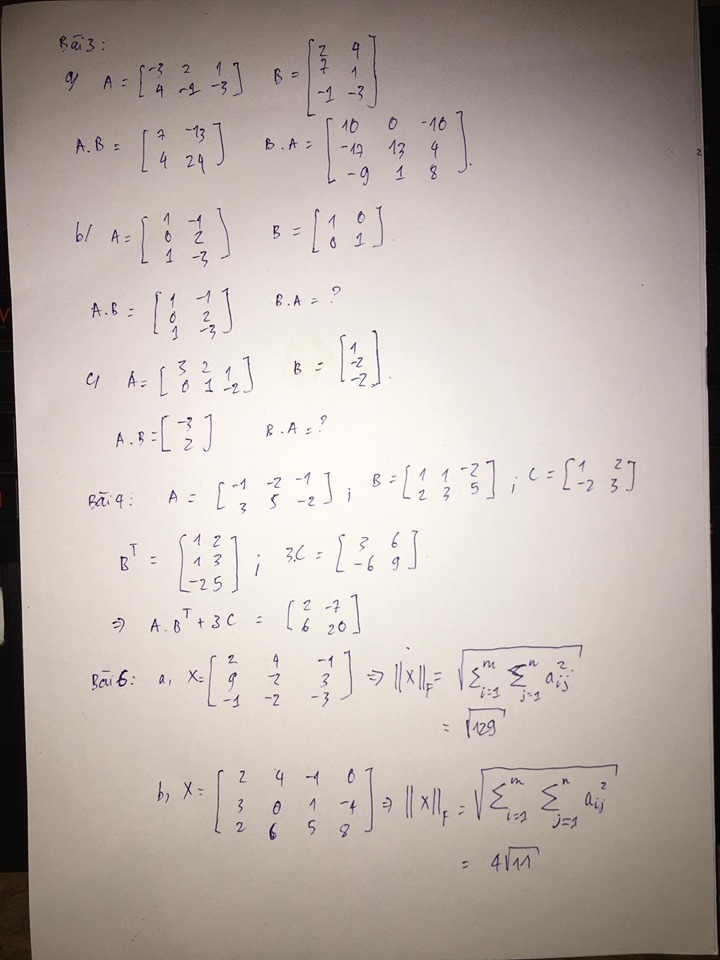 Bài 3:
a/ A = [-3 2 1; 4 -1 -3] B = [2 4; 7 1; -1 -3]
A.B = [7 -13; 4 24] B.A = [10 0 -10; -17 13 4; -9 1 8].
b/ A = [1 -1; 0 2; 1 -3] B = [1 0; 0 1].
A.B = [1 -1; 0 2; 1 -3] B.A = ?
c/ A = [3 2 1; 0 1 -2] B = [1; -2; -2].
A.B = [-3; 2] B.A = ?
Bài 4: A = [-1 -2 -1; 3 5 -2]; B = [1 1 -2; 2 3 5]; C = [1 2; -2 3]
B^T = [1 2; 1 3; -2 5]; 3.C = [3 6; -6 9]
=> A.B^T + 3C = [2 -7; 6 20]
Bài 6: a, X = [2 4 -1; 9 -2 3; -1 -2 -3] => ||X||_F = √(∑_{i=1}^{m} ∑_{j=1}^{n} a_{ij}^2)
= √129
b, X = [2 4 -1 0; 3 0 1 -4; 2 6 5 8] => ||X||_F = √(∑_{i=1}^{m} ∑_{j=1}^{n} a_{ij}^2)
= 4√11